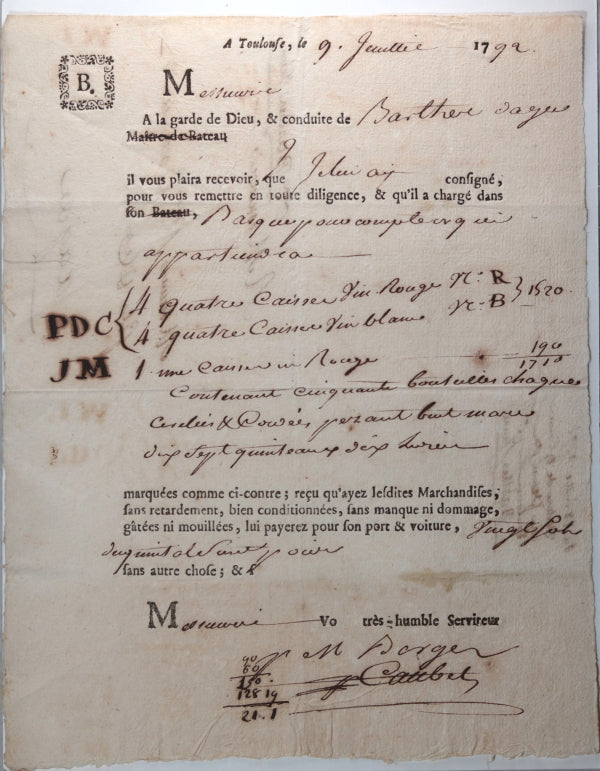 A Toulouse, le 9. Juillie 1792.
B.
Messieurs
A la garde de Dieu, & conduite de Barthere
Maître de Bateau
il vous plaira recevoir, que consigné,
pour vous remettre en toute diligence, & qu'il a chargé dans
son Bateau, Barque pour compte et qui
appartiendra
PDC { 4 quatre Caisses Vin Rouge N.º R } 1520.
4 quatre Caisses Vin blanc N.º B
JM 1 une Caisse Rouge 190
1710
Contenant cinquante bouteilles chaque
& Cordées pezant but marc
dix sept quinteaux dix Livres
marquées comme ci-contre; reçu qu'ayez lesdites Marchandises,
sans retardement, bien conditionnées, sans manque ni dommage,
gâtées ni mouillées, lui payerez pour son port & voiture, Vingt sols
du quintal
sans autre chose; &
Messieurs Vo très-humble Serviteur
p M Berger
Caubet
90
60
150.
128 19
21. 1